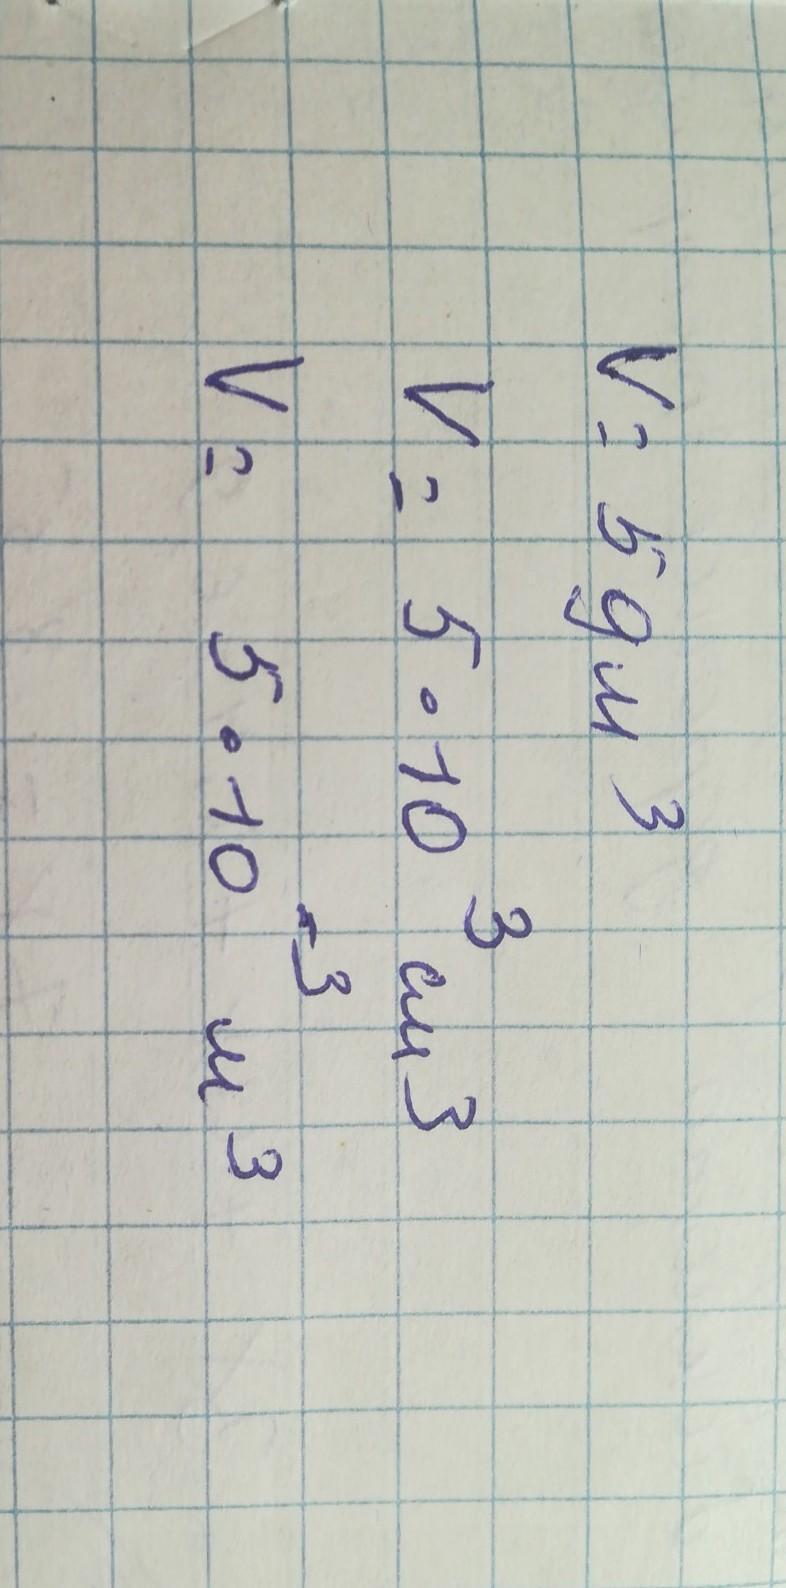 V = 5 дм³
V = 5 · 10³ см³
V = 5 · 10⁻³ м³